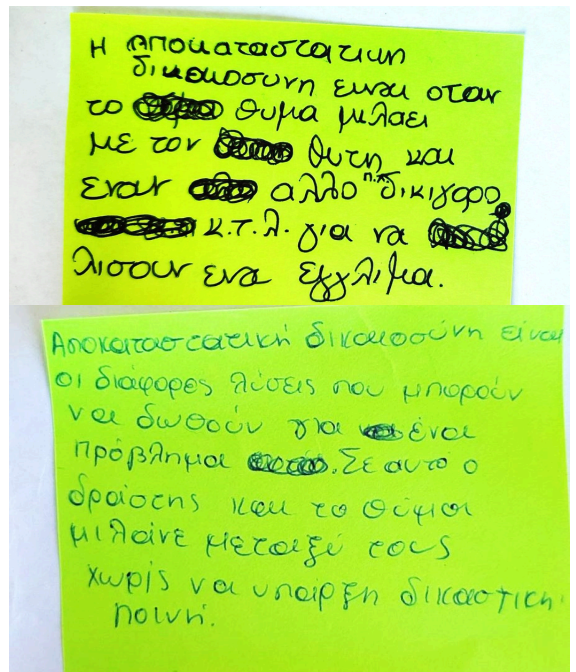 Η Αποκαταστατικη
δικαιοσυνη ειναι οταν
το θυμα μιλαει
με τον θυτη και
εναν αλλο π.χ. δικιγορο
κ.τ.λ. για να
λισουν ενα εγγλιμα.
Αποκαταστατική δικαιοσύνη είναι
οι διάφορες λύσεις που μπορούν
να δωθούν για ένα
πρόβλημα. Σε αυτό ο
δράστης και το θύμα
μιλάνε μεταξύ τους
χωρίς να υπάρξη δικαστική
ποινή.